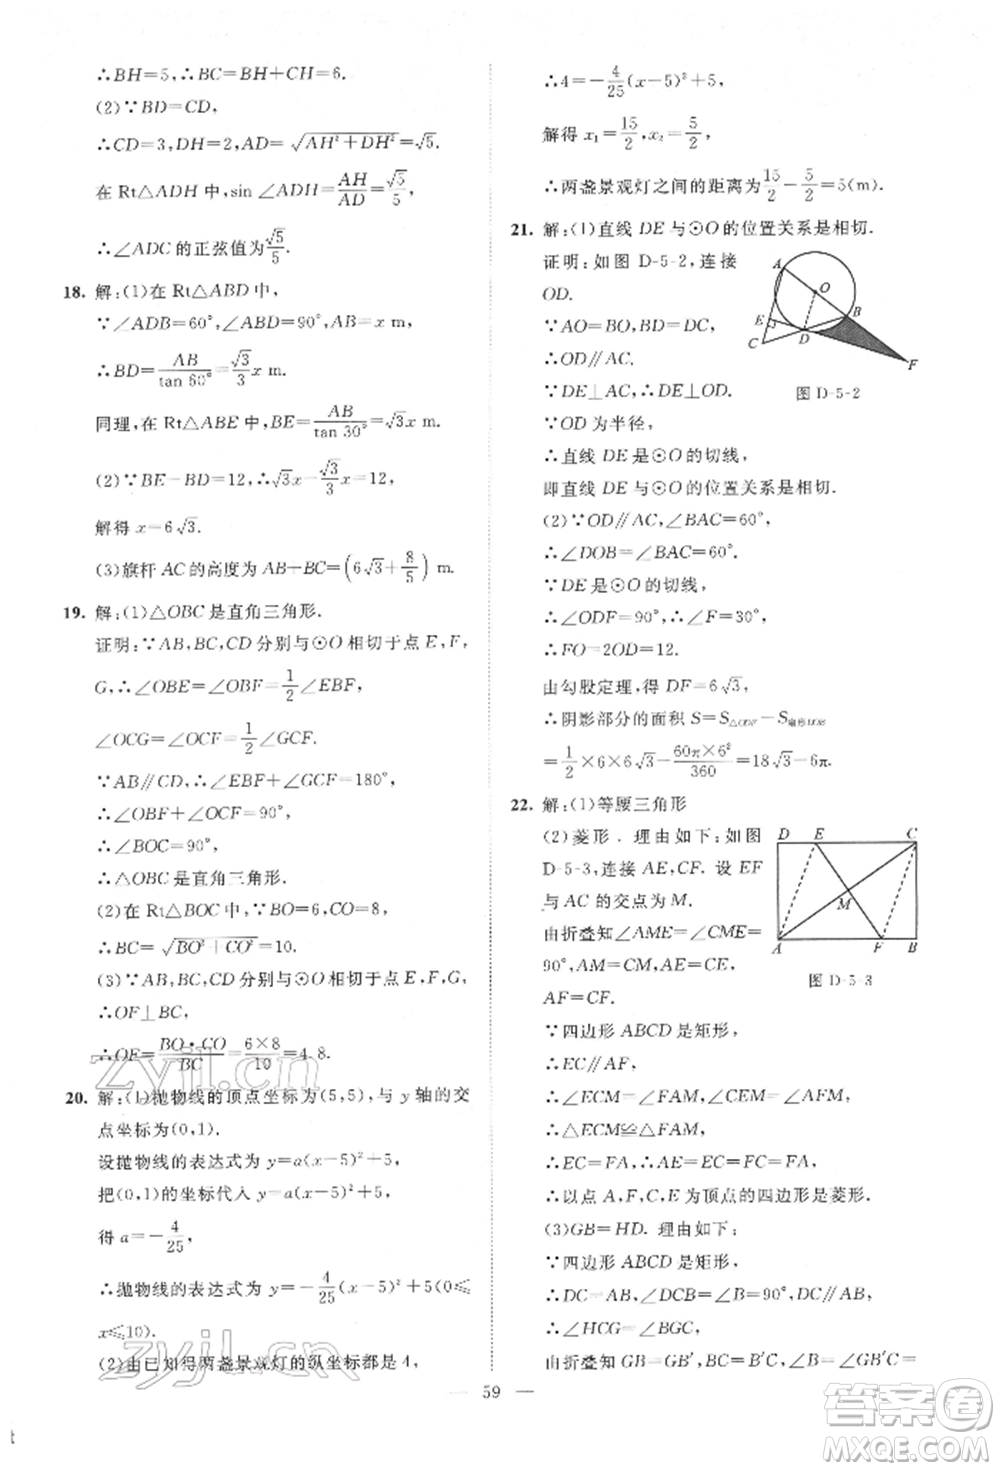 ∴BH=5,∴BC=BH+CH=6.
(2)∵BD=CD,
∴CD=3,DH=2,AD=√(AH²+DH²)=√5.
在 Rt△ADH 中,sin ∠ADH=AH/AD=√5/5,
∴∠ADC 的正弦值为√5/5.
18. 解:(1)在 Rt△ABD 中,
∵∠ADB=60°,∠ABD=90°,AB=x m,
∴BD=AB/tan 60°=√3/3 x m.
同理,在 Rt△ABE 中,BE=AB/tan 30°=√3x m.
(2)∵BE-BD=12,∴√3x-√3/3 x=12,
解得 x=6√3.
(3)旗杆 AC 的高度为 AB+BC=(6√3+8/5) m.
19. 解:(1)△OBC 是直角三角形.
证明:∵AB,BC,CD 分别与⊙O 相切于点 E,F,
G,∴∠OBE=∠OBF=1/2∠EBF,
∠OCG=∠OCF=1/2∠GCF.
∵AB∥CD,∴∠EBF+∠GCF=180°,
∴∠OBF+∠OCF=90°,
∴∠BOC=90°,
∴△OBC 是直角三角形.
(2)在 Rt△BOC 中,∵BO=6,CO=8,
∴BC=√(BO²+CO²)=10.
(3)∵AB,BC,CD 分别与⊙O 相切于点 E,F,G,
∴OF⊥BC,
∴OF=BO·CO/BC=6×8/10=4.8.
20. 解:(1)抛物线的顶点坐标为(5,5),与 y 轴的交
点坐标为(0,1).
设抛物线的表达式为 y=a(x-5)²+5,
把(0,1)的坐标代入 y=a(x-5)²+5,
得 a=-4/25,
∴抛物线的表达式为 y=-4/25(x-5)²+5(0≤
x≤10).
(2)由已知得两盏景观灯的纵坐标都是 4,
∴4=-4/25(x-5)²+5,
解得 x₁=15/2,x₂=5/2,
∴两盏景观灯之间的距离为15/2-5/2=5(m).
21. 解:(1)直线 DE 与⊙O 的位置关系是相切.
证明:如图 D-5-2,连接
OD.
∵AO=BO,BD=DC,
∴OD∥AC.
∵DE⊥AC,∴DE⊥OD.
∵OD 为半径,
∴直线 DE 是⊙O 的切线,
即直线 DE 与⊙O 的位置关系是相切.
A
O
E
B
C
D
F
图 D-5-2
(2)∵OD∥AC,∠BAC=60°,
∴∠DOB=∠BAC=60°.
∵DE 是⊙O 的切线,
∴∠ODF=90°,∴∠F=30°,
∴FO=2OD=12.
由勾股定理,得 DF=6√3,
∴阴影部分的面积 S=S△ODF-S扇形DOB
=1/2×6×6√3-60π×6²/360=18√3-6π.
22. 解:(1)等腰三角形
(2)菱形. 理由如下:如图
D-5-3,连接 AE,CF. 设 EF
与 AC 的交点为 M.
由折叠知∠AME=∠CME=
90°,AM=CM,AE=CE,
AF=CF.
D E C
M
A F B
图 D-5-3
∵四边形 ABCD 是矩形,
∴EC∥AF,
∴∠ECM=∠FAM,
∴△ECM≌△FAM,
∴EC=FA,∴AE=EC=CF=FA,
∴以点 A,F,C,E 为顶点的四边形是菱形.
(3)GB=HD. 理由如下:
∵四边形 ABCD 是矩形,
∴DC=AB,∠BCD=∠B=90°,DC∥AB,
∴∠HCG=∠BGC.
由折叠知 GB=GB′,∠B=∠GB′C=
— 59 —
zyjl.cn
zyjl.cn
答案卷
MXQE.COM